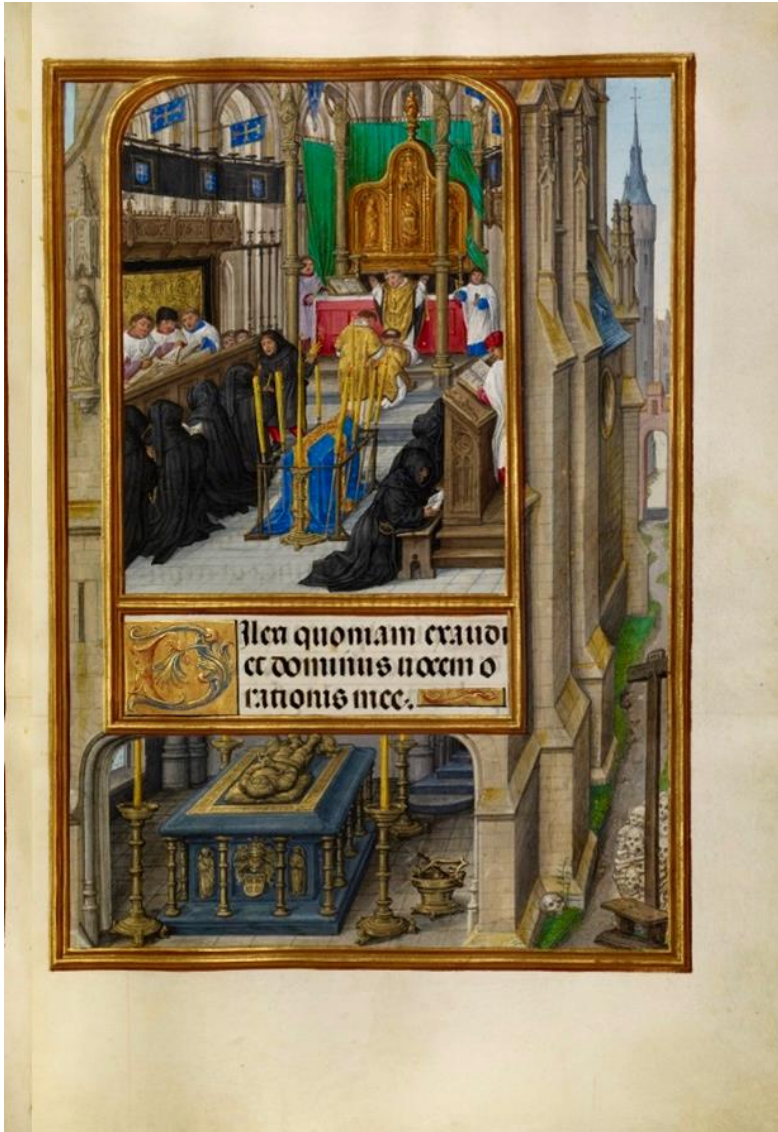 DIlexi quoniam exaudi
et dominus vocem o
rationis mee.